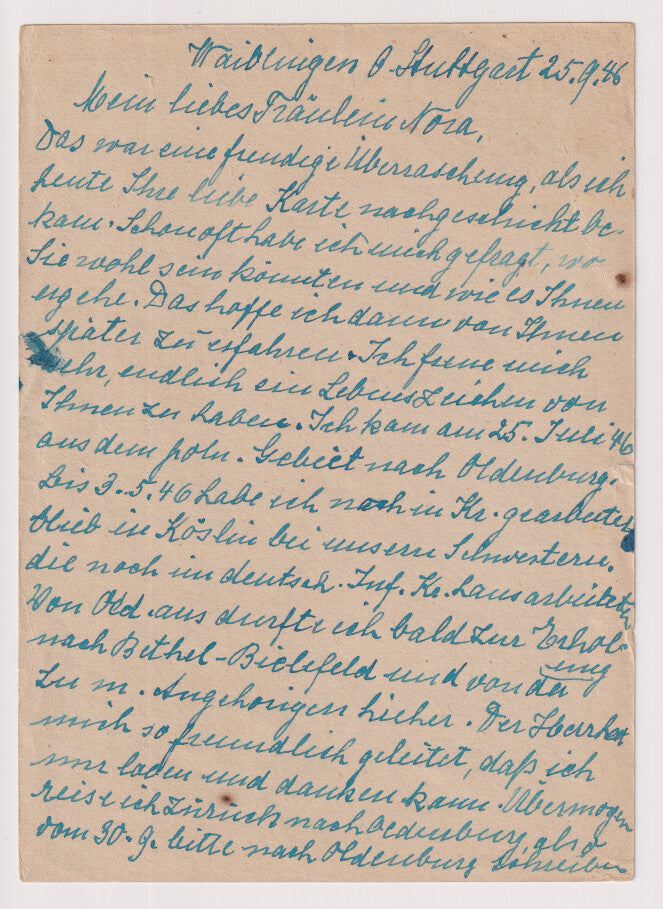 Waiblingen b Stuttgart 25.9.46
Mein liebes Fräulein Nora,
Das war eine freudige Überraschung, als ich
heute Ihre liebe Karte nachgeschickt be-
kam. Schon oft habe ich mich gefragt, wo
Sie wohl sein könnten und wie es Ihnen
ergehe. Das hoffe ich dann von Ihnen
später zu erfahren. Ich freue mich
sehr, endlich ein Lebenszeichen von
Ihnen zu haben. Ich kam am 25. Juli 46
aus dem poln. Gebiet nach Oldenburg.
Bis 3.5.46 habe ich noch in Kr. gearbeitet,
blieb in Köslin bei unsern Schwestern,
die noch im deutsch. Inf. Kr. Haus arbeiteten
Von Old. aus durfte ich bald zur Erhol-
ung
nach Bethel-Bielefeld und von da
zu m. Angehörigen hieher. Der Herr hat
mich so freundlich geleitet, daß ich
nur loben und danken kann. Übermorgen
reise ich zurück nach Oldenburg, also
vom 30.9. bitte nach Oldenburg schreiben